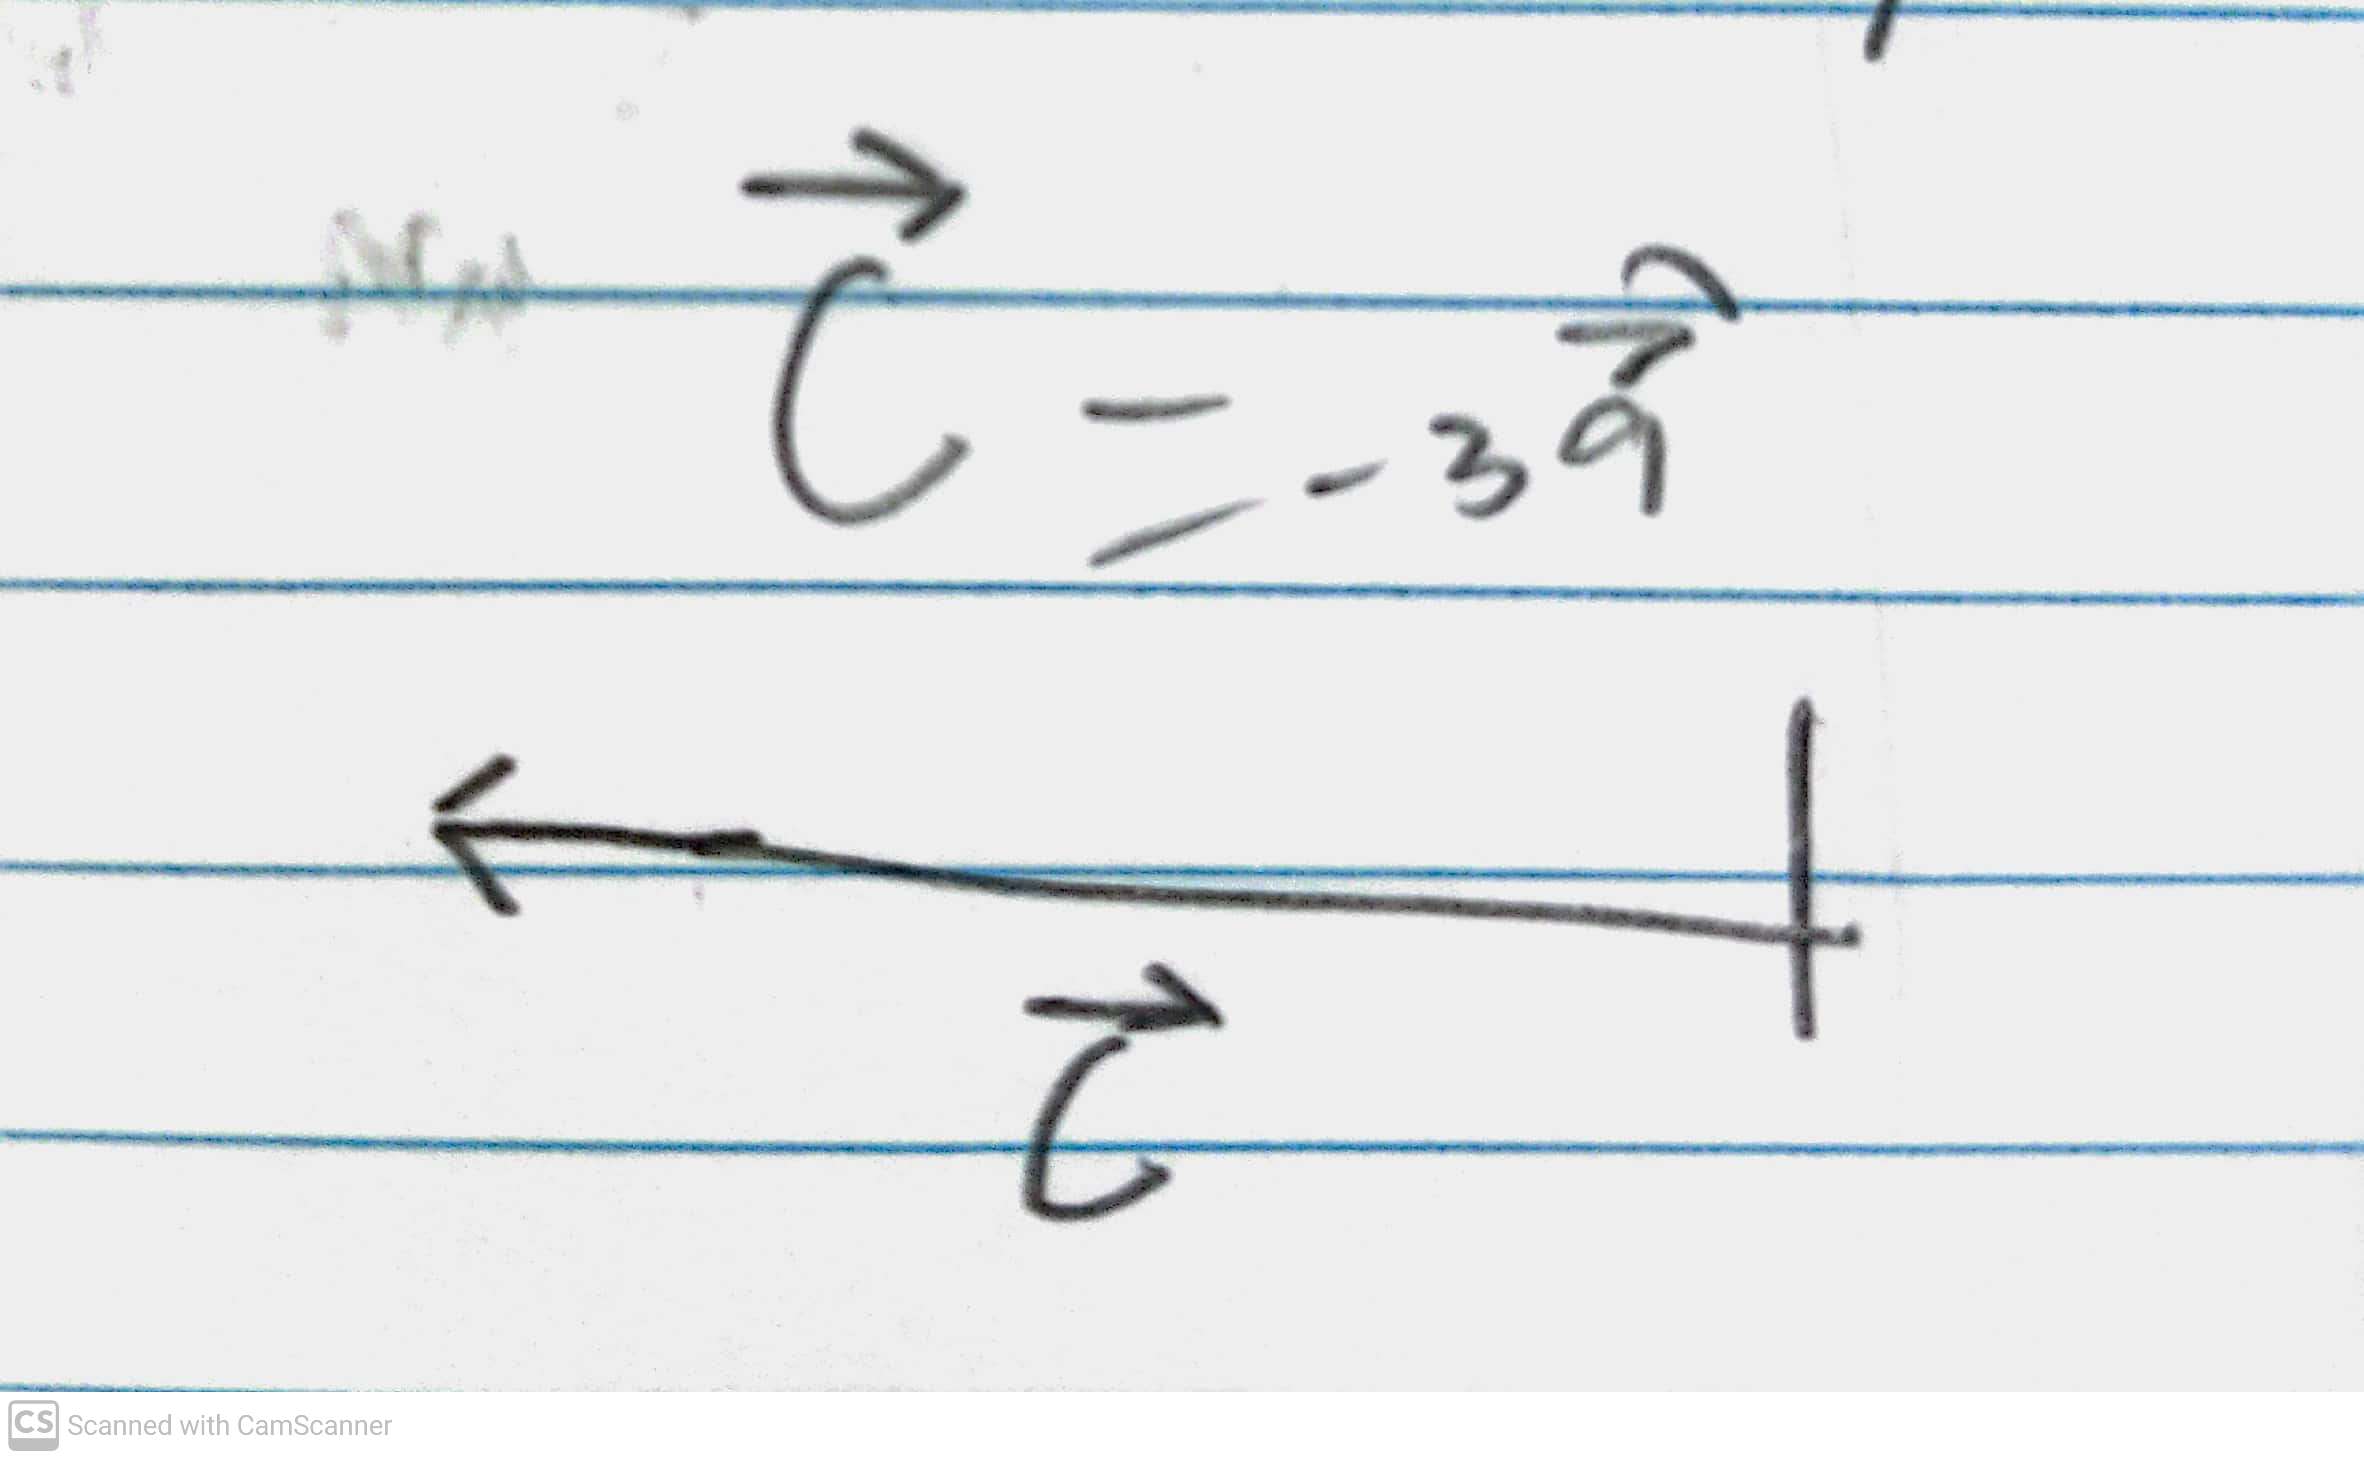 C⃗ = -3a⃗
C⃗
CS Scanned with CamScanner